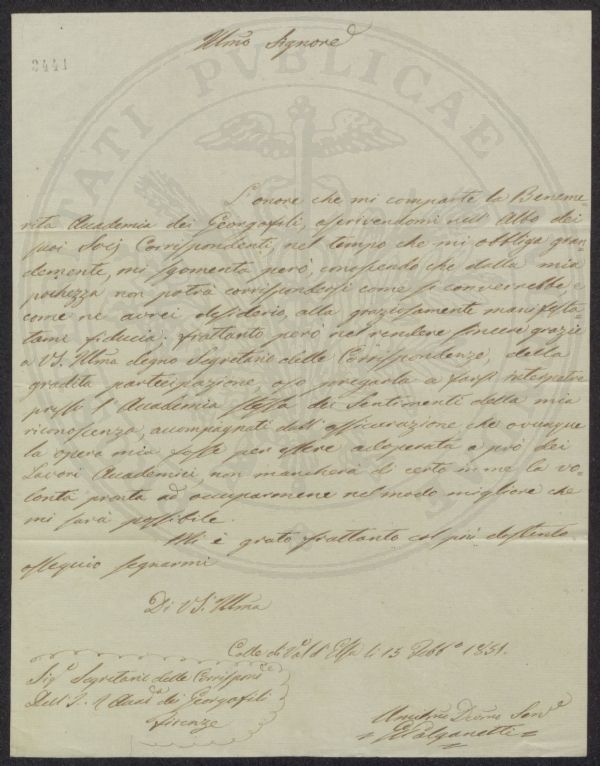 Illmo Signore
2441
PVBLICAE
L'onore che mi comparte la Beneme-
rita Accademia dei Georgofili, ascrivendomi nell'Albo dei
suoi Socj Corrispondenti, nel tempo che mi obbliga gran-
demente, mi sgomenta però, conoscendo che dalla mia
pochezza non potrà corrispondersi come si converrebbe, e
come ne avrei desiderio, alla graziosamente manifesta-
tami fiducia. Frattanto però nel rendere sincere grazie
a VS. Illma degno Segretario delle Corrispondenze, della
gradita partecipazione, oso pregarla a farsi interpetre
presso l'Accademia stessa dei Sentimenti della mia
riconoscenza, accompagnati dall'assicurazione che ovunque
la opera mia fosse per essere adoperata a prò dei
Lavori Accademici, non mancherà di certo in me la vo-
lontà pronta ad occuparmene nel modo migliore che
mi sarà possibile.
Mi è grato frattanto col più distinto
ossequio segnarmi
Di VS. Illma
Colle di Val d'Elsa li 15 Febbo 1851.
Sigr Segretario delle Corrispone
Dell'I. R. Accada dei Georgofili
Firenze